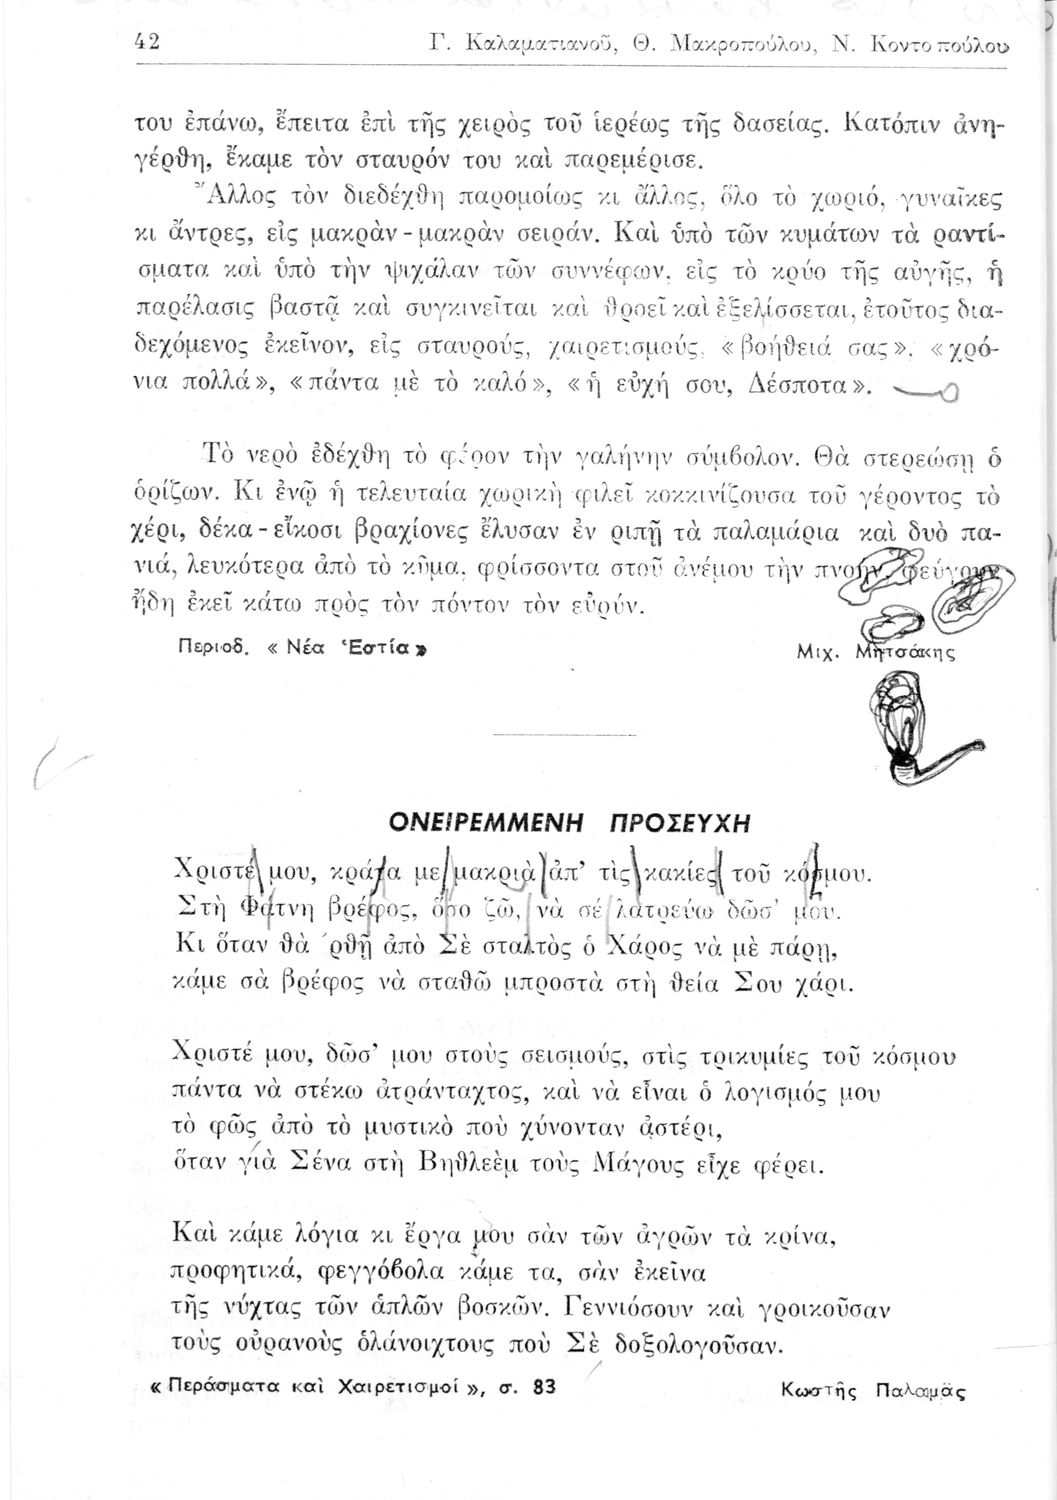 42
Γ. Καλαματιανοῦ, Θ. Μακροπούλου, Ν. Κοντοπούλου
του ἐπάνω, ἔπειτα ἐπὶ τῆς χειρὸς τοῦ ἱερέως τῆς δασείας. Κατόπιν ἀνη-
γέρθη, ἔκαμε τὸν σταυρόν του καὶ παρεμέρισε.
Ἄλλος τὸν διεδέχθη παρομοίως κι ἄλλος, ὅλο τὸ χωριό, γυναῖκες
κι ἄντρες, εἰς μακρὰν - μακρὰν σειράν. Καὶ ὑπὸ τῶν κυμάτων τὰ ραντί-
σματα καὶ ὑπὸ τὴν ψιχάλαν τῶν συννέφων, εἰς τὸ κρύο τῆς αὐγῆς, ἡ
παρέλασις βαστᾷ καὶ συγκινεῖται καὶ θροεῖ καὶ ἐξελίσσεται, ἐτοῦτος δια-
δεχόμενος ἐκεῖνον, εἰς σταυρούς, χαιρετισμούς, « βοήθειά σας », « χρό-
νια πολλά », « πάντα μὲ τὸ καλό », « ἡ εὐχή σου, Δέσποτα ».
Τὸ νερὸ ἐδέχθη τὸ φέρον τὴν γαλήνην σύμβολον. Θὰ στερεώσῃ ὁ
ὁρίζων. Κι ἐνῷ ἡ τελευταία χωρικὴ φιλεῖ κοκκινίζουσα τοῦ γέροντος τὸ
χέρι, δέκα - εἴκοσι βραχίονες ἔλυσαν ἐν ριπῇ τὰ παλαμάρια καὶ δυὸ πα-
νιά, λευκότερα ἀπὸ τὸ κῦμα, φρίσσοντα στοῦ ἀνέμου τὴν πνοήν, φεύγουν
ἤδη ἐκεῖ κάτω πρὸς τὸν πόντον τὸν εὐρύν.
Περιοδ. « Νέα Ἑστία »
Μιχ. Μητσάκης
ΟΝΕΙΡΕΜΜΕΝΗ ΠΡΟΣΕΥΧΗ
Χριστέ μου, κράτα με μακριὰ ἀπ' τὶς κακίες τοῦ κόσμου.
Στὴ Φάτνη βρέφος, ὅσο ζῶ, νὰ σέ λατρεύω δῶσ' μου.
Κι ὅταν θὰ 'ρθῇ ἀπὸ Σὲ σταλτὸς ὁ Χάρος νὰ μὲ πάρῃ,
κάμε σὰ βρέφος νὰ σταθῶ μπροστὰ στὴ θεία Σου χάρι.
Χριστέ μου, δῶσ' μου στοὺς σεισμούς, στὶς τρικυμίες τοῦ κόσμου
πάντα νὰ στέκω ἀτράνταχτος, καὶ νὰ εἶναι ὁ λογισμός μου
τὸ φῶς ἀπὸ τὸ μυστικὸ ποὺ χύνονταν ἀστέρι,
ὅταν γιὰ Σένα στὴ Βηθλεὲμ τοὺς Μάγους εἶχε φέρει.
Καὶ κάμε λόγια κι ἔργα μου σὰν τῶν ἀγρῶν τὰ κρίνα,
προφητικά, φεγγόβολα κάμε τα, σὰν ἐκεῖνα
τῆς νύχτας τῶν ἁπλῶν βοσκῶν. Γεννιόσουν καὶ γροικοῦσαν
τοὺς οὐρανοὺς ὁλάνοιχτους ποὺ Σὲ δοξολογοῦσαν.
« Περάσματα καὶ Χαιρετισμοί », σ. 83
Κωστῆς Παλαμᾶς